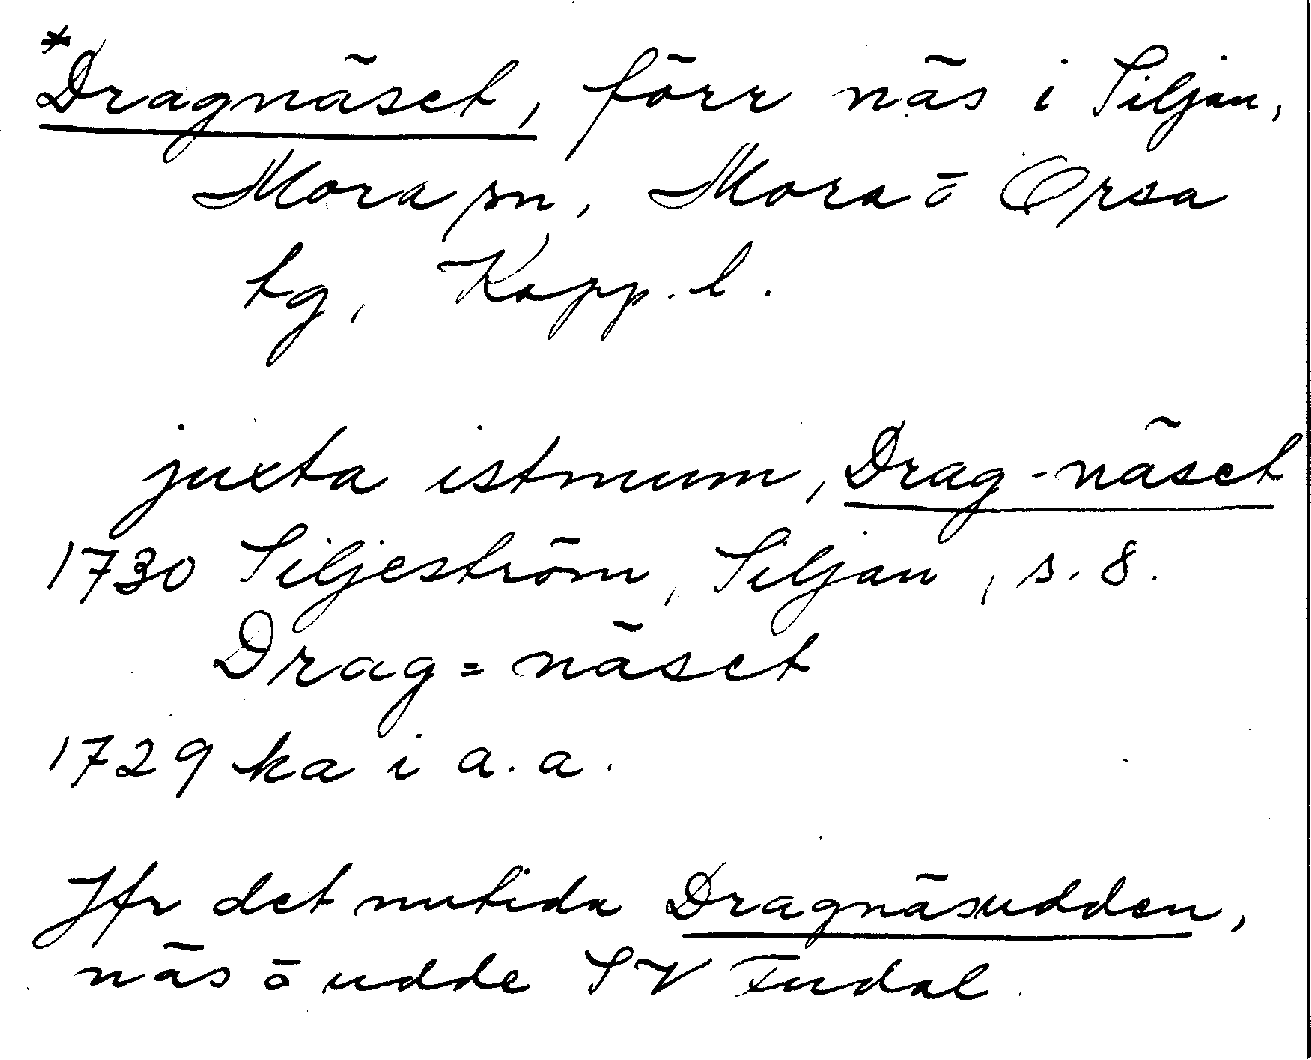 *Dragnäset, förr näs i Siljan,
Mora sn, Mora o Orsa
tg, Kopp. l.
juxta istmum, Drag-näset
1730 Siljeström, Siljan, s. 8.
Drag=näset
1729 ka i a. a.
Jfr det nutida Dragnäsudden,
näs o udde SV Fudal